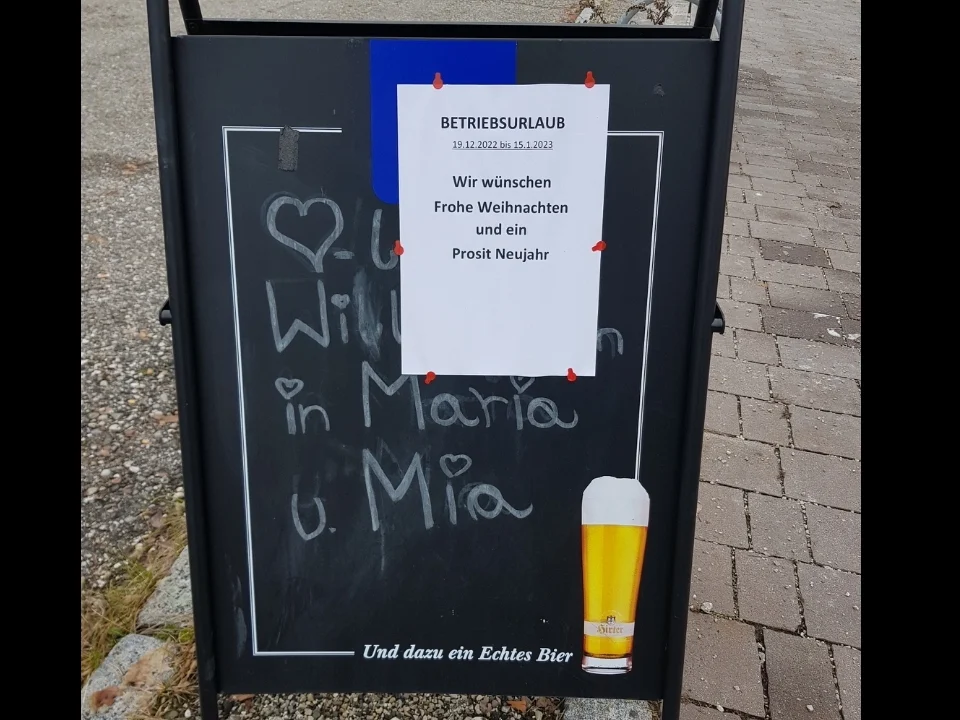 BETRIEBSURLAUB
19.12.2022 bis 15.1.2023
Wir wünschen
Frohe Weihnachten
und ein
Prosit Neujahr
in Maria
u. Mia
Und dazu ein Echtes Bier
Hirter